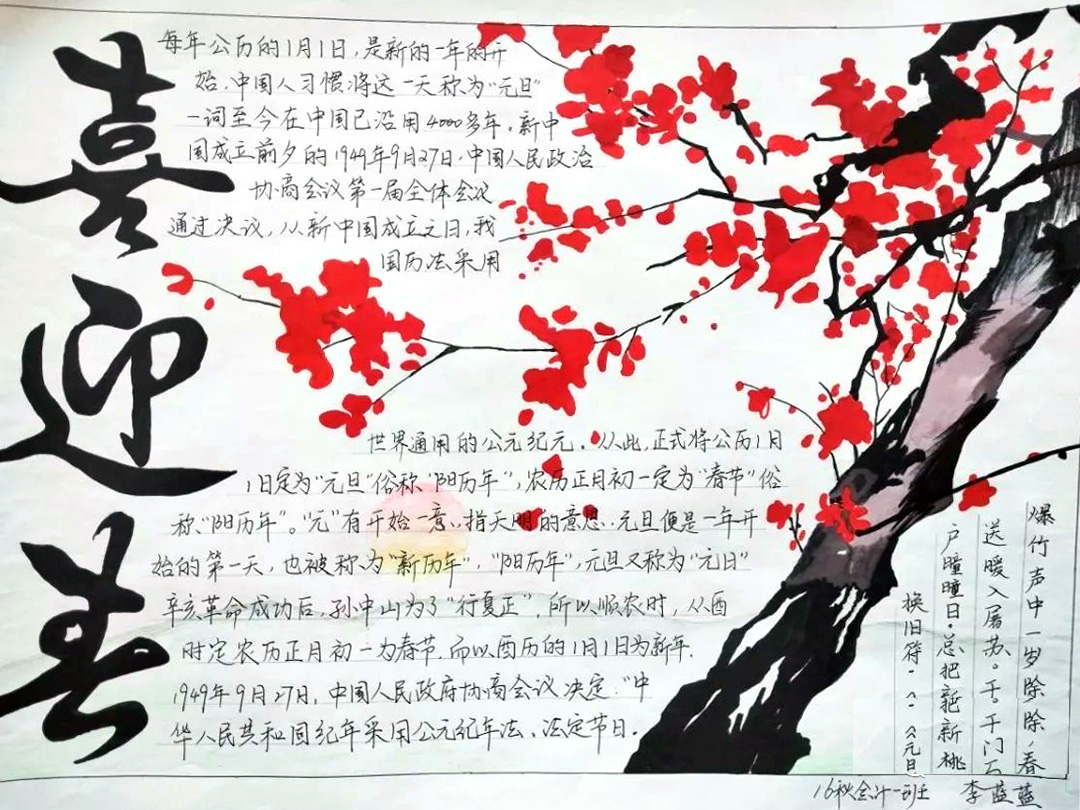 喜迎春
每年公历的1月1日，是新的一年的开
始，中国人习惯将这一天称为“元旦”
一词至今在中国已沿用4000多年。新中
国成立前夕的1949年9月27日，中国人民政治
协商会议第一届全体会议
通过决议，从新中国成立之日，我
国历法采用
世界通用的公元纪元。从此，正式将公历1月
1日定为“元旦”俗称“阳历年”，农历正月初一定为“春节”俗
称、“阳历年”。“元”有开始一意，指天明的意思，元旦便是一年开
始的第一天，也被称为“新历年”，“阳历年”，元旦又称为“元日”
辛亥革命成功后，孙中山为了“行夏正”，所以顺农时，从西
时定农历正月初一为春节，而以西历的1月1日为新年，
1949年9月27日，中国人民政府协商会议决定：“中
华人民共和国纪年采用公元纪年法、法定节日。
爆竹声中一岁除除，春
送暖入屠苏。千。千门万
户瞳瞳日。总把新桃
换旧符。《元日
16秋会计一班 李蓝蓝